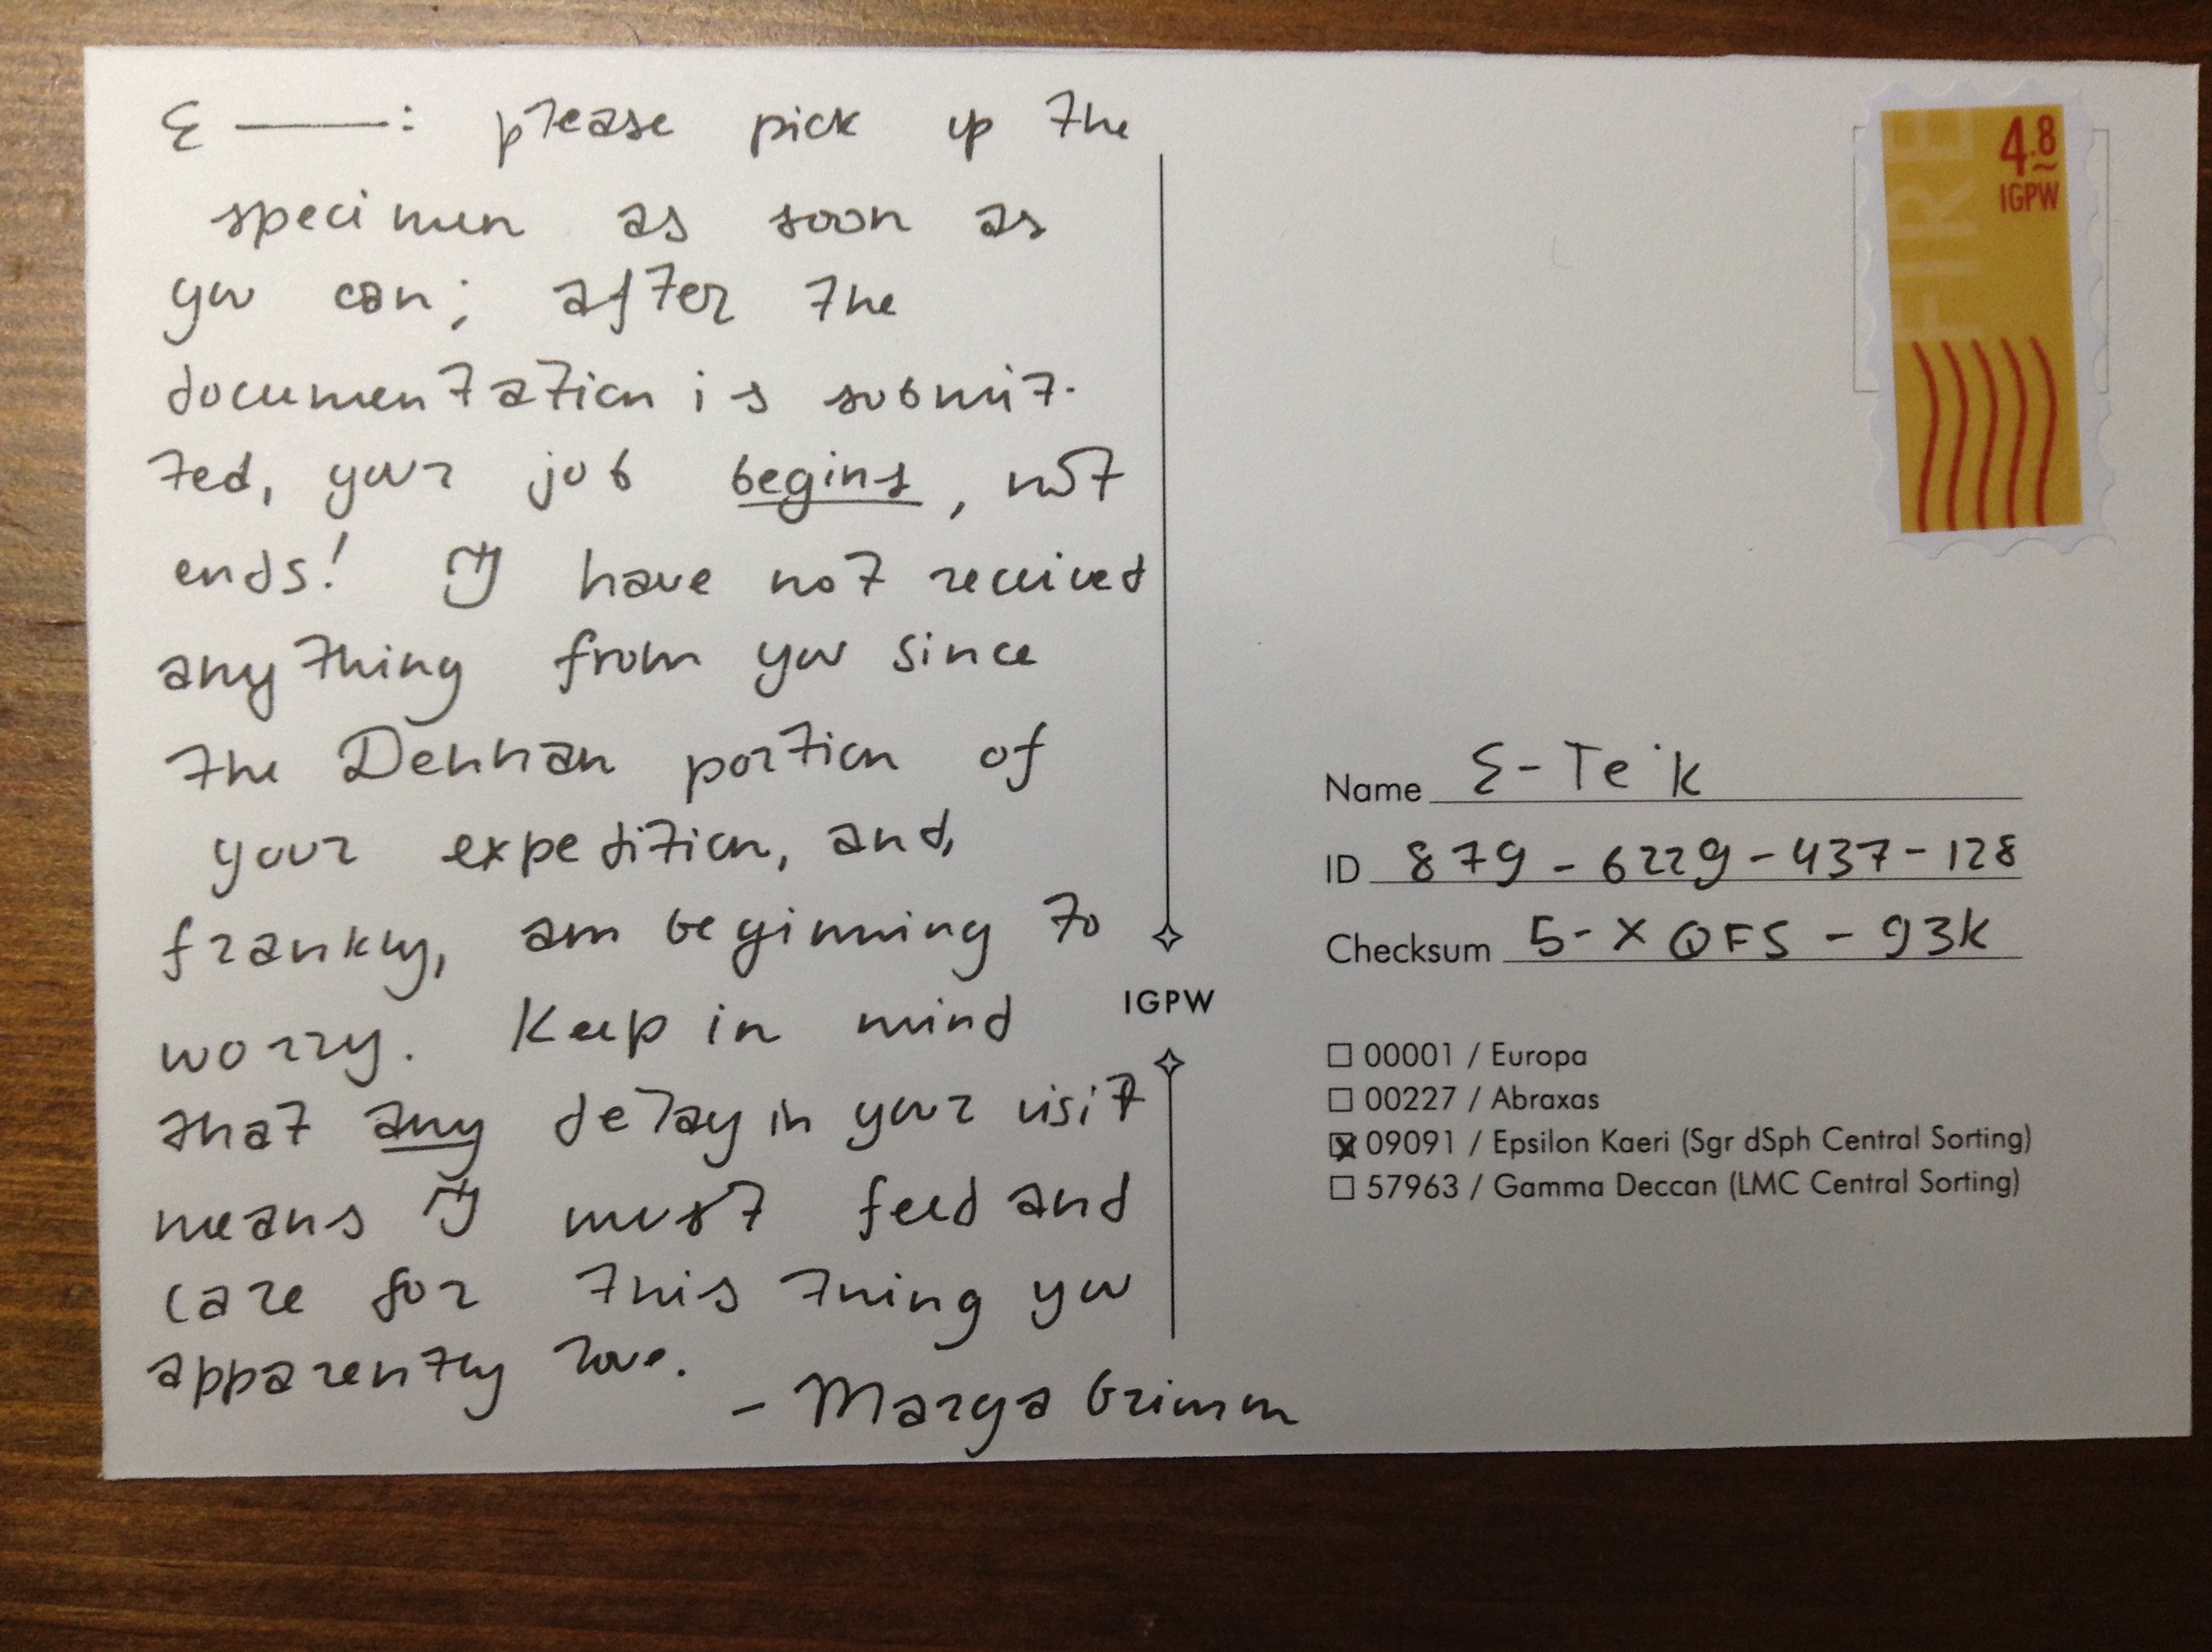 Σ ——: please pick up the
specimen as soon as
you can; after the
documentation is submit-
ted, your job begins, not
ends! I have not received
anything from you since
the Dennan portion of
your expedition, and,
frankly, am beginning to
worry. Keep in mind
that any delay in your visit
means I must feed and
care for this thing you
apparently love.
- Marga Grimm
IGPW
FIRE
4.8
IGPW
Name Σ-Te'k
ID 879-6229-437-128
Checksum 5-XQFS-93K
00001 / Europa
00227 / Abraxas
09091 / Epsilon Kaeri (Sgr dSph Central Sorting)
57963 / Gamma Deccan (LMC Central Sorting)